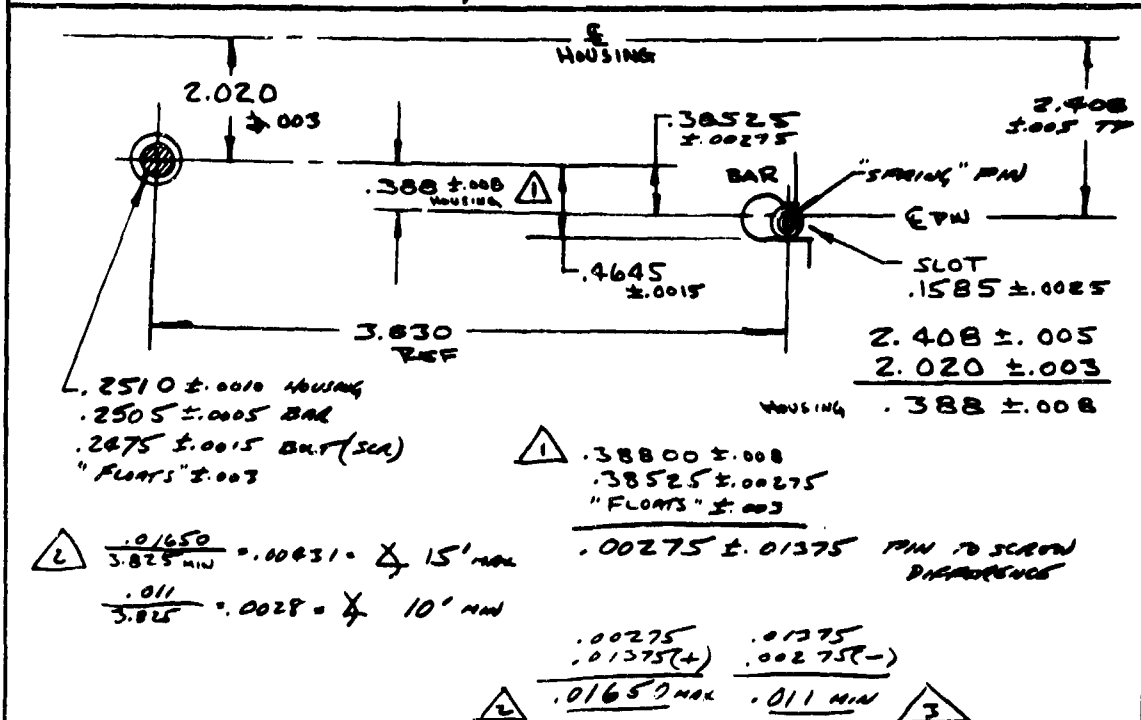 ℄
HOUSING
2.020
±.003
.38525
±.00275
2.408
±.005 TP
BAR
"SPRING" PIN
.388 ±.008 1
HOUSING
℄ PIN
.4645
±.0015
SLOT
.1585 ±.0025
3.830
REF
2.408 ±.005
2.020 ±.003
HOUSING .388 ±.008
.2510 ±.0010 HOUSING
.2505 ±.0005 BAR
.2475 ±.0015 BOLT (SCR)
"FLOATS" ±.003
1 .38800 ±.008
.38525 ±.00275
"FLOATS" ±.003
.00275 ±.01375 PIN TO SCREW
DIFFERENCE
2 .01650 / 3.825 MIN = .00431 = ∡ 15' MAX
.011 / 3.825 = .0028 = ∡ 10' MIN
.00275 .01375
.01375(+) .00275(-)
2 .01650 MAX .011 MIN 3